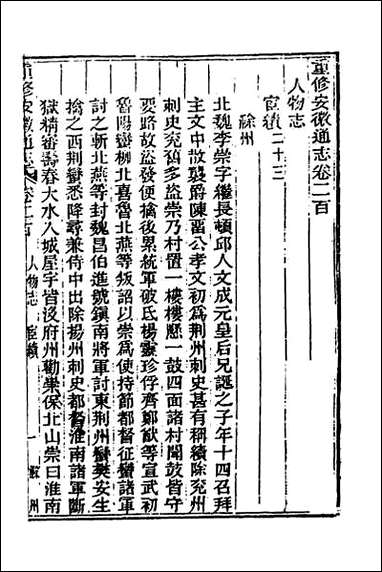 重修安徽通志卷二百
人物志
宦績二十三
蘇州
北魏李崇字繼長頓邱人文成元皇后兄誕之子年十四召拜
主文中散襲爵陳畱公孝文初爲荆州刺史甚有稱績除兖州
刺史兖舊多盜崇乃村置一樓樓懸一鼓四面諸村聞鼓皆守
要路故盜發便擒後累統軍破氐楊靈珍俘齊鄭猷等宣武初
魯陽蠻柳北喜魯北燕等叛詔以崇爲使持節都督征蠻諸軍
討之斬北燕等封魏昌伯進號鎭南將軍討東荆州蠻樊安生
擒之西荆蠻悉降尋兼侍中出除揚州刺史都督淮南諸軍斷
獄精審壽春大水入城屋宇皆沒府州勸崇保北山崇曰淮南
重修安徽通志 卷二百 人物志 宦績 一 蘇州